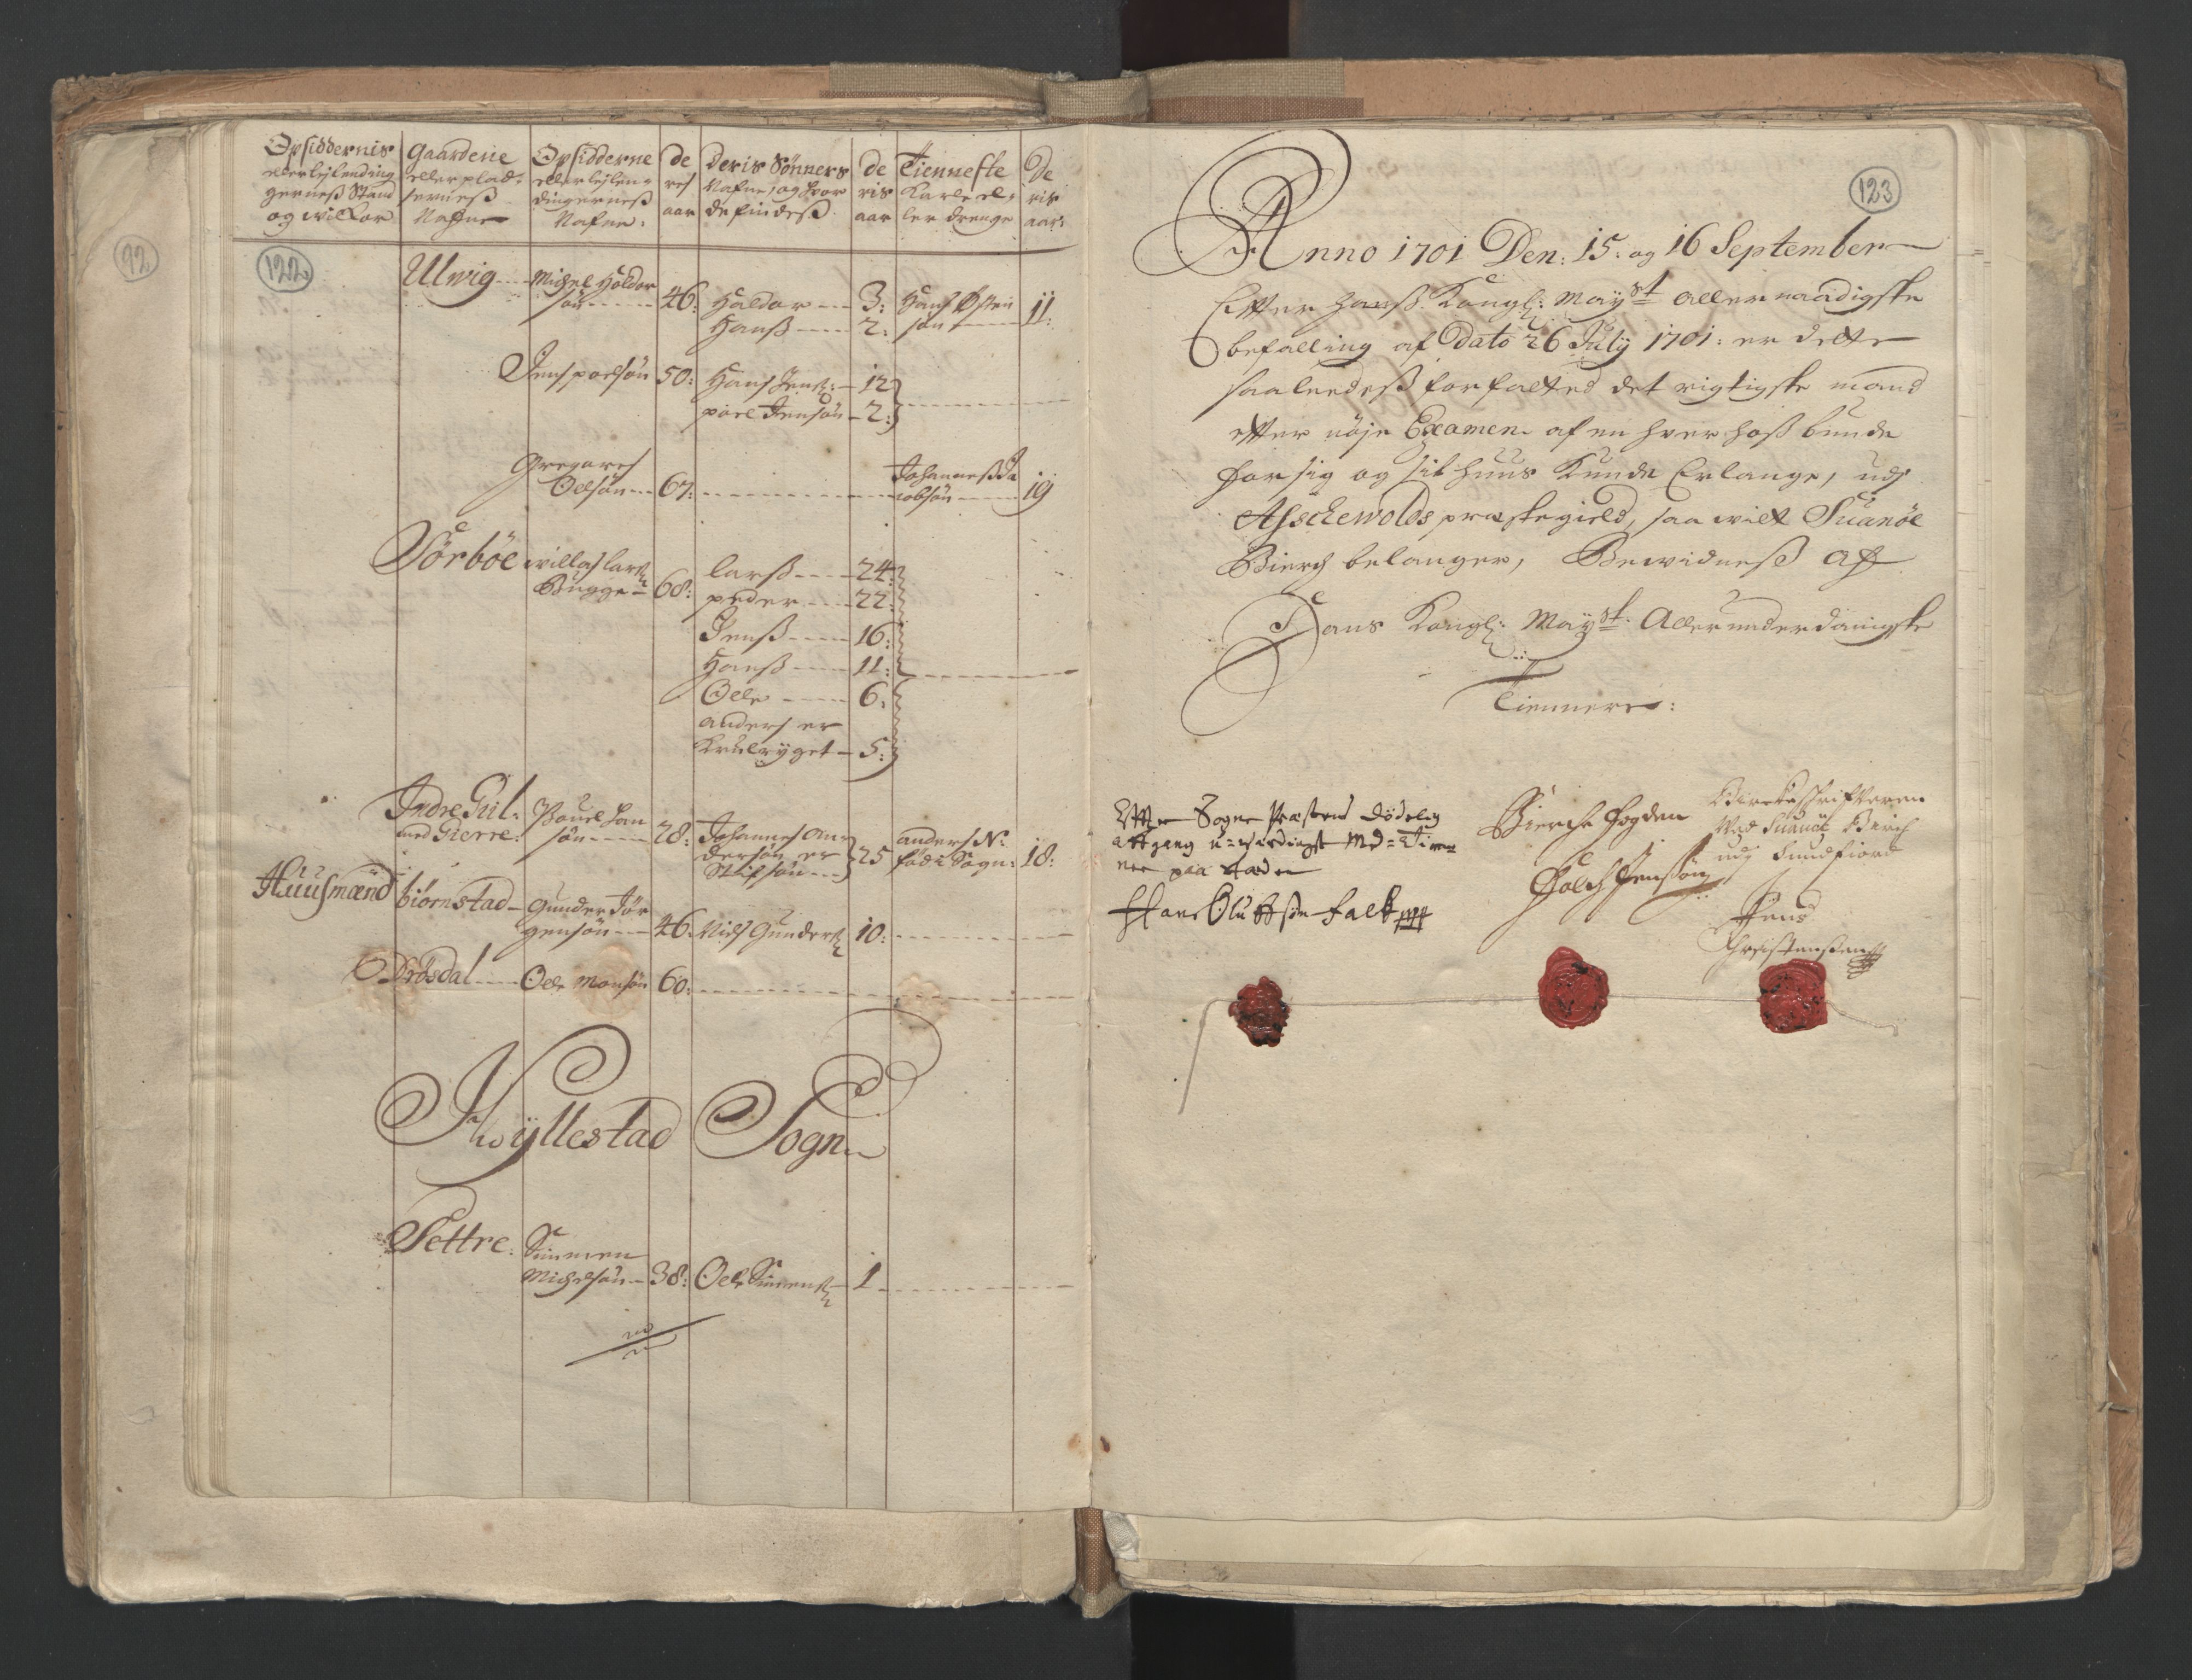 92
122
Opsiddernis eller lejlendingerneß Stand og wilkor
Gaardene eller pladserneß Nafne
Opsidderne eller lejlendingerneß Nafne:
de res aar
Deris Sønners Nafne, og hvor de findeß
de ris aar
Tienneste Karle eller drenge
De ris aar:
Ulwig Michel Haldorsøn 46: Haldor 3: Hans Østensøn 11:
Hanß 2:
Jens poelsøn 50: Hans Jens: 12
poel Jensøn 2:
Gregares Oelsøn 67: Johannes Jacobsøn 19
Sørbøe willas lars: Bugge 68: larß 24:
peder 22:
Jenß 16:
Hanß 11:
Oele 6:
anders er
krulryget 5:
Indre Gul: Pouel Jan
med Gierre: søn 28: Johannes Andersøn er Stifsøn 25 anders N: fød i Sogn: 18:
Huusmænd biørnstad Gunder Jørgensøn 46: Niels Gunders: 10:
Drøsdal Oele Monsøn 60:
Hwyllestad Sogn
Settre: Simmen
Michelsøn 38: Oele Simens: 1
123
Anno 1701 Den: 15: og 16 September
Efter hanß Kongl: Mayst allernaadigste
befalling af Dato 26 July 1701: er dette
saaledeß forfatted det rigtigste mand
efter nøje Examen af en hver hoß bunde
for sig og sit huus kunde Erlange, udj
Asschewolds præstegield, saa wit Suanøe
Bierch belanger, Bewidneß af
Hans Kongl: Mayst. Allerunderdanigste
Tiennere:
Efter Sogne Præstens dødelig
afgang u-wærdigst Md-Tienere paa
Hans Oluffsøn Falk mpp
Bierche fogden
Jensøn
Birchschrifveren
Ved Suanøe Birch
udj Sundfiord
Jens
Christensen